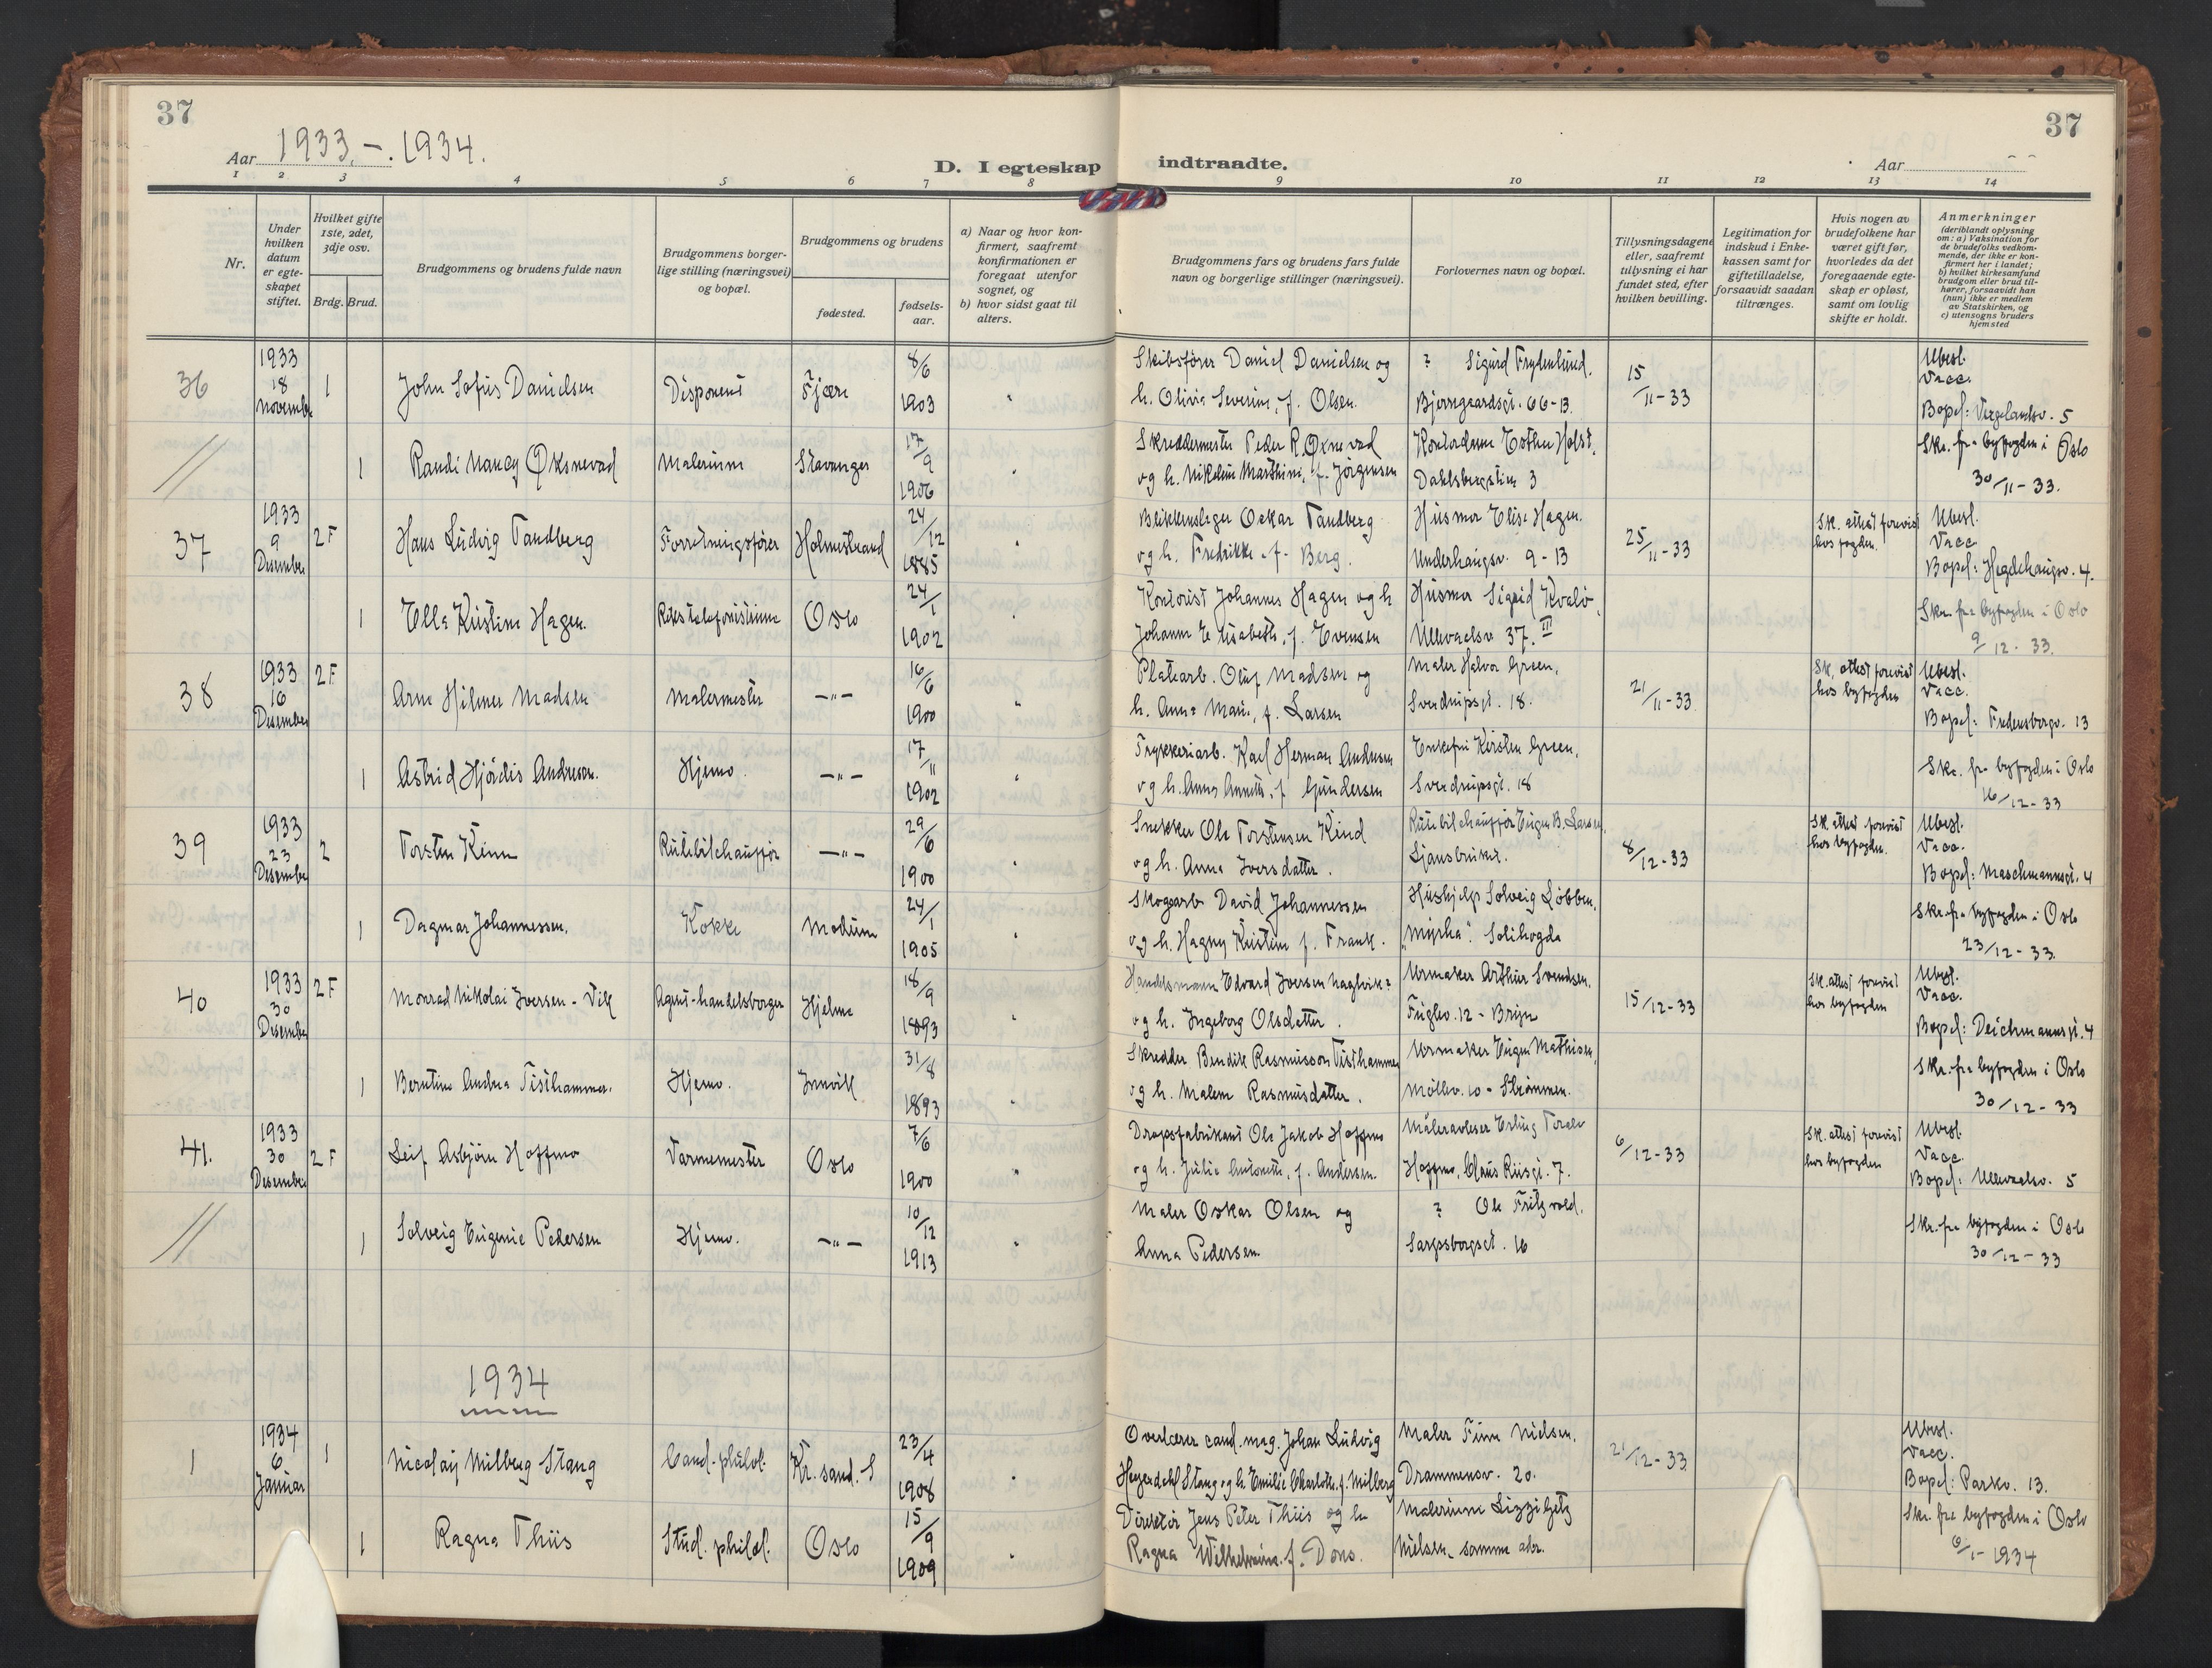 37
37
Aar 1933.-.1934.
D. I egteskap indtraadte.
Aar
1 2 3 4 5 6 7 8 9 10 11 12 13 14
Nr.
Under hvilken datum er egteskapet stiftet.
Hvilket gifte 1ste, 2det, 3dje osv.
Brdg. Brud.
Brudgommens og brudens fulde navn
Brudgommens borgerlige stilling (næringsvei) og bopæl.
Brudgommens og brudens
fødested.
fødselsaar.
a) Naar og hvor konfirmert, saafremt konfirmationen er foregaat utenfor sognet, og
b) hvor sidst gaat til alters.
Brudgommens fars og brudens fars fulde navn og borgerlige stillinger (næringsvei).
Forlovernes navn og bopæl.
Tillysningsdagene eller, saafremt tillysning ei har fundet sted, efter hvilken bevilling.
Legitimation for indskud i Enkekassen samt for giftetilladelse, forsaavidt saadan tiltrænges.
Hvis nogen av brudefolkene har været gift før, hvorledes da det foregaaende egteskap er opløst, samt om lovlig skifte er holdt.
Anmerkninger (deriblandt oplysning om: a) Vaksination for de brudefolks vedkommende, der ikke er konfirmert her i landet; b) hvilket kirkesamfund brudgom eller brud tilhører, forsaavidt han (hun) ikke er medlem av Statskirken, og c) utensogns bruders hjemsted
36 1933 18 November 1 John Sofus Danielsen Disponent Fjære 8/6 1903 Skibsfører Daniel Danielsen og h. Olivia Severine, f. Olsen. ? Sigurd Frydenlund. Bjerregaardsgt. 66-13. 15/11-33 Ubesl. Vacc. Bopel: Vergelandsv. 5
1 Randi Nancy Øksnevad Malerinne Stavanger 17/9 1906 Skreddermester Peder R. Øxnevad og h. Nikoline Marthine, f. Jörgensen Kontordame Esther Holst. Dahlsbergstien 3 Skr. fra byfogden i Oslo 30/11-33.
37 1933 9 Desember 2 F Hans Ludvig Tandberg Forretningsfører Holmestrand 24/12 1885 Blikkenslager Oskar Tandberg og h. Fredrikke f. Berg. Husmor Elise Hagen. Underhaugsv. 9-13 25/11-33 Sk. attest forevist hos fogden. Ubesl. Vacc. Bopel: Hegdehaugsv. 4.
1 Ella Kristine Hagen. Rikstelefonistinne Oslo 24/1 1902 Kontorist Johannes Hagen og h Johanne Elisabeth, f. Evensen Husmor Sigrid Kvalö. Ullevaalsv 37. III Skr. fra byfogden i Oslo 9/12-33.
38 1933 16 Desember 2 F Arne Hilmer Madsen Malermester -"- 16/6 1900 Platearb. Oluf Madsen og h. Anna Marie, f. Larsen Maler Halvor Green. Sverdrupsgt. 18. 21/11-33 Sk. attest forevist hos byfogden Ubesl. Vacc. Bopel: Fredensborgv. 13
1 Astrid Hjördis Andresen. Hjemv. -"- 17/11 1902 Trykkeriarb. Karl Herman Andresen og h. Anna Annette, f Gundersen Enkefru Kirsten Green. Sverdrupsgt. 18 Skr. fra byfogden i Oslo 16/12-33
39 1933 23 Desember 2 Torsten Kinn Rutebilchauffør -"- 29/6 1900 Snekker Ole Torstensen Kind og h. Anna Iversdatter. Rutebilchauffør Eugen B. Larsen. Ljansbruket. 8/12-33 Sk. attest forevist hos byfogden. Ubesl. Vacc. Bopel: Maschmannsgt. 4
1 Dagmar Johannessen. Kokke Modum 24/1 1905 Skogsarb David Johannessen og h. Hagny Kristine f. Frank. Hushjelp Solveig Löbben. "Myrha". Sollhøgda Skr. fra byfogden i Oslo 23/12-33.
40 1933 30 Desember 2 F Monrad Nikolai Iversen - Vik Agent-handelsborger Hjelme 18/9 1893 Handelsmann Edvard Iversen Naglvik? og h. Ingeborg Olsdatter. Urmaker Arthur Svendsen. Fuglev. 12 - Bryn 15/12-33 Sk. attest forevist hos byfogden Ubesl. Vacc. Bopel: Deichmannsgt. 4
1 Berntine Andrea Tisthammer. Hjemv. Innvik 31/8 1893 Skredder Bendik Rasmusson Tisthammer og h. Malene Rasmusdatter. Urmaker Eugen Mathisen. Möllev. 10 - Strömmen. Skr. fra byfogden i Oslo 30/12-33
41. 1933 30 Desember 2 F Leif Asbjörn Hoffmo Varmemester Oslo 7/6 1900 Dropsfabrikant Ole Jakob Hoffmo og h. Julie Antonette, f. Andersen. Måleravleser Erling Toralv Hoffmo, Claus Riisgt. 7. 6/12-33 Sk. attest forevist hos byfogden Ubesl. Vacc. Bopel: Ullevaalsv. 5
1 Solveig Eugenie Pedersen Hjemv. -"- 10/12 1913 Maler Oskar Olsen og Anna Pedersen ? Ole Fritzvold. Sarpsborggt. 16 Skr. fra byfogden i Oslo 30/12-33
1934
1 1934 6 Januar 1 Nicolay Milberg Stang Cand. philol. Kr.sand. S 23/4 1908 Overlærer cand. mag. Johan Ludvig Heyerdahl Stang og h. Emilie Charlotte, f. Milberg Maler Finn Nielsen. Drammensv. 20. 21/12-33 Ubesl. Vacc. Bopel: Parkv. 13.
1 Ragna Thiis Stud. philol. Oslo 15/9 1909 Direktör Jens Peter Thiis og h. Ragna Wilhelmine f. Dons. Malerinne Lizzi Getz Nielsen. samme adr. Skr. fra byfogden i Oslo 6/1-1934